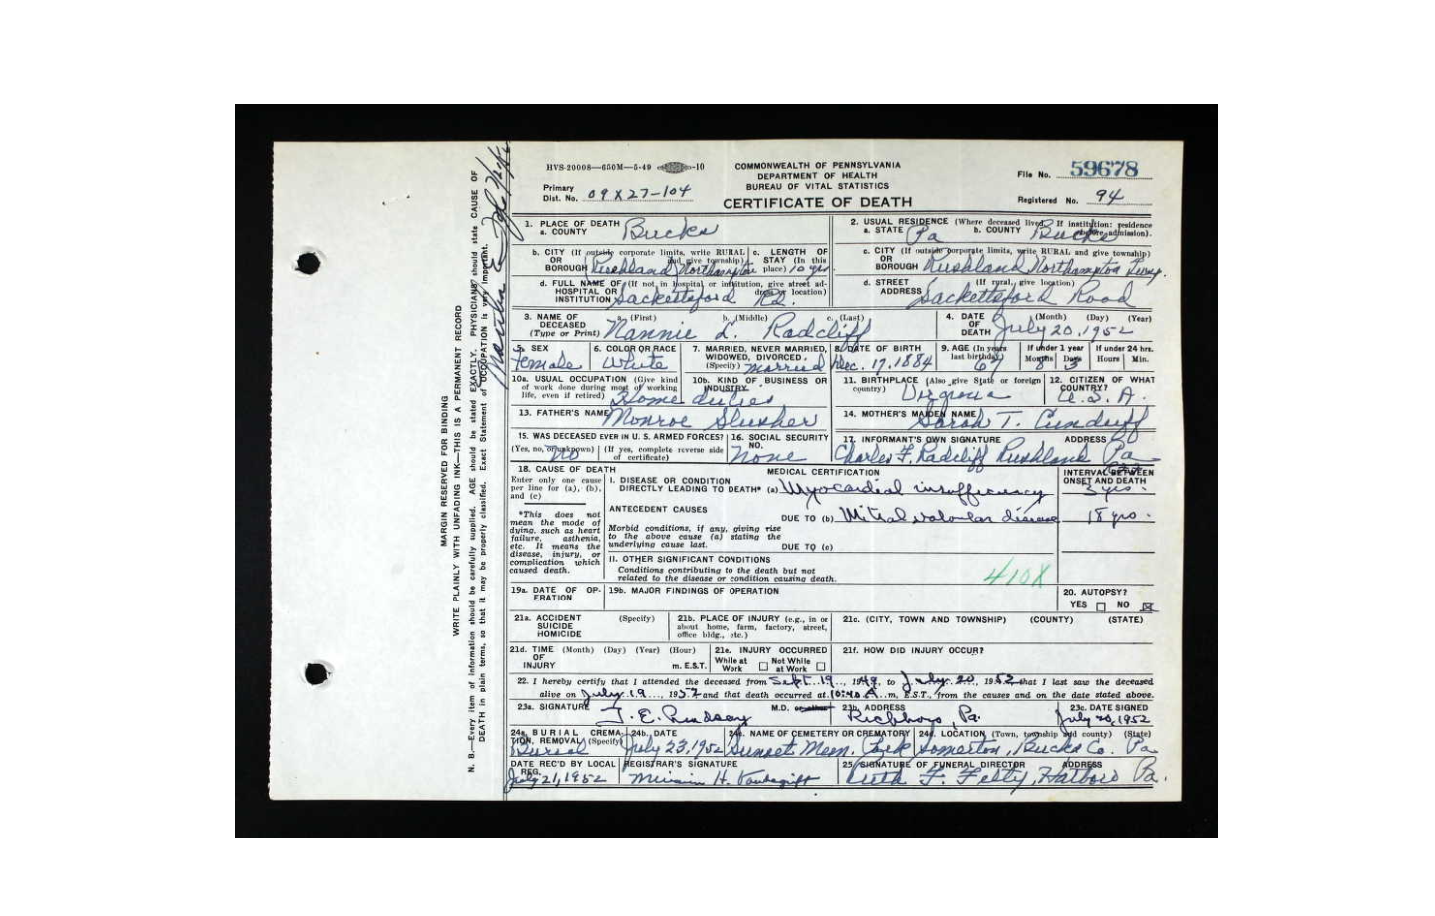 HVS-20008—650M—5-49 -10
COMMONWEALTH OF PENNSYLVANIA
DEPARTMENT OF HEALTH
BUREAU OF VITAL STATISTICS
CERTIFICATE OF DEATH
File No. 59678
Primary Dist. No. 09X27-104
Registered No. 94
1. PLACE OF DEATH
a. COUNTY Bucks
2. USUAL RESIDENCE (Where deceased lived. If institution: residence before admission).
a. STATE Pa b. COUNTY Bucks
b. CITY (If outside corporate limits, write RURAL and give township) OR BOROUGH Rushland Northampton
c. LENGTH OF STAY (In this place) 10 yrs
c. CITY (If outside corporate limits, write RURAL and give township) OR BOROUGH Rushland Northampton Twp.
d. FULL NAME OF (If not in hospital or institution, give street address or location) HOSPITAL OR INSTITUTION Sackettsford Rd.
d. STREET ADDRESS (If rural, give location) Sackettsford Road
3. NAME OF DECEASED (Type or Print) a. (First) b. (Middle) c. (Last)
Nannie L. Radcliff
4. DATE OF DEATH (Month) (Day) (Year) July 20, 1952
5. SEX Female
6. COLOR OR RACE White
7. MARRIED, NEVER MARRIED, WIDOWED, DIVORCED. (Specify) Married
8. DATE OF BIRTH Dec. 17, 1884
9. AGE (In years last birthday) 67
If under 1 year Months 8 Days 3
If under 24 hrs. Hours Min.
10a. USUAL OCCUPATION (Give kind of work done during most of working life, even if retired)
10b. KIND OF BUSINESS OR INDUSTRY
Home duties
11. BIRTHPLACE (Also give State or foreign country) Virginia
12. CITIZEN OF WHAT COUNTRY? U.S.A.
13. FATHER'S NAME Monroe Slusher
14. MOTHER'S MAIDEN NAME Sarah T. Cundiff
15. WAS DECEASED EVER IN U. S. ARMED FORCES? (Yes, no, or unknown) (If yes, complete reverse side of certificate) no
16. SOCIAL SECURITY NO. None
17. INFORMANT'S OWN SIGNATURE ADDRESS
Charles F. Radcliff Rushland Pa
18. CAUSE OF DEATH
Enter only one cause per line for (a), (b), and (c)
MEDICAL CERTIFICATION
INTERVAL BETWEEN ONSET AND DEATH
I. DISEASE OR CONDITION DIRECTLY LEADING TO DEATH* (a) Myocardial insufficiency 3 yrs.
*This does not mean the mode of dying, such as heart failure, asthenia, etc. It means the disease, injury, or complication which caused death.
ANTECEDENT CAUSES
DUE TO (b) Mitral valvular disease 18 yrs.
Morbid conditions, if any, giving rise to the above cause (a) stating the underlying cause last.
DUE TO (c)
II. OTHER SIGNIFICANT CONDITIONS
Conditions contributing to the death but not related to the disease or condition causing death.
410X
19a. DATE OF OPERATION
19b. MAJOR FINDINGS OF OPERATION
20. AUTOPSY?
YES NO
21a. ACCIDENT SUICIDE HOMICIDE (Specify)
21b. PLACE OF INJURY (e.g., in or about home, farm, factory, street, office bldg., etc.)
21c. (CITY, TOWN AND TOWNSHIP) (COUNTY) (STATE)
21d. TIME OF INJURY (Month) (Day) (Year) (Hour) m. E.S.T.
21e. INJURY OCCURRED
While at Work Not While at Work
21f. HOW DID INJURY OCCUR?
22. I hereby certify that I attended the deceased from Sept. 19, 1949, to July 20, 1952 that I last saw the deceased
alive on July 19, 1952 and that death occurred at 10:40 A. m. E.S.T., from the causes and on the date stated above.
23a. SIGNATURE J. E. Lindsay M.D. or other
23b. ADDRESS Richboro, Pa.
23c. DATE SIGNED July 20, 1952
24a. BURIAL, CREMATION, REMOVAL (Specify) Burial
24b. DATE July 23, 1952
24c. NAME OF CEMETERY OR CREMATORY Sunset Mem. Park
24d. LOCATION (Town, township and county) (State) Somerton, Bucks Co. Pa
DATE REC'D BY LOCAL REG. July 21, 1952
REGISTRAR'S SIGNATURE Miriam H.
25. SIGNATURE OF FUNERAL DIRECTOR ADDRESS
Ruth F. Felty, Hatboro Pa.
MARGIN RESERVED FOR BINDING
WRITE PLAINLY WITH UNFADING INK—THIS IS A PERMANENT RECORD
N. B.—Every item of information should be carefully supplied. AGE should be stated EXACTLY. PHYSICIANS should state CAUSE OF
DEATH in plain terms, so that it may be properly classified. Exact Statement of OCCUPATION is very important.
Martha E.